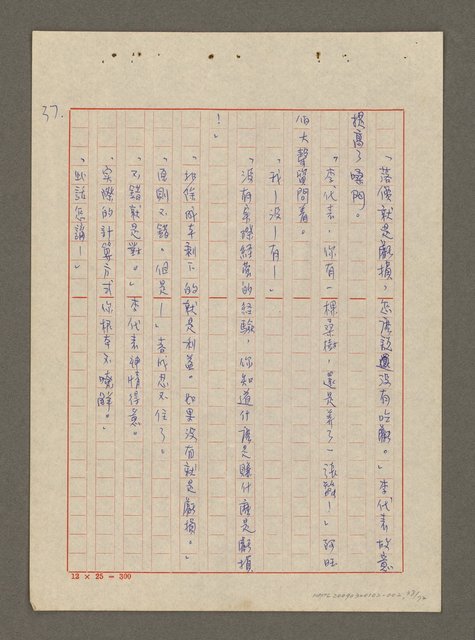 37.
「落價就是虧損，怎麼說還沒有吃虧。」李代表故意
提高了嗓門。
「李代表，你有一棵桑樹，還是養了一張蠶！」阿旺
伯大聲質問着。
「我—沒—有—」
「沒有實際經營的經驗，你知道什麼是賺什麼是虧損
！」
「扣除成本剩下的就是利益。如果沒有就是虧損。」
「原則不錯。但是—」春代忍不住了。
「不錯就是對。」李代表神情得意。
「實際的計算方式你根本不瞭解。」
「此話怎講—」
12 × 25 = 300
NMTL20090320102-002,38/72